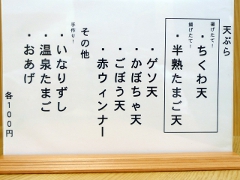 天ぷら
揚げたて〜
・ちくわ天
揚げたて〜
・半熟たまご天
・ゲソ天
・かぼちゃ天
・ごぼう天
・赤ウィンナー
その他
手作り!
・いなりずし
・温泉たまご
・おあげ
各100円